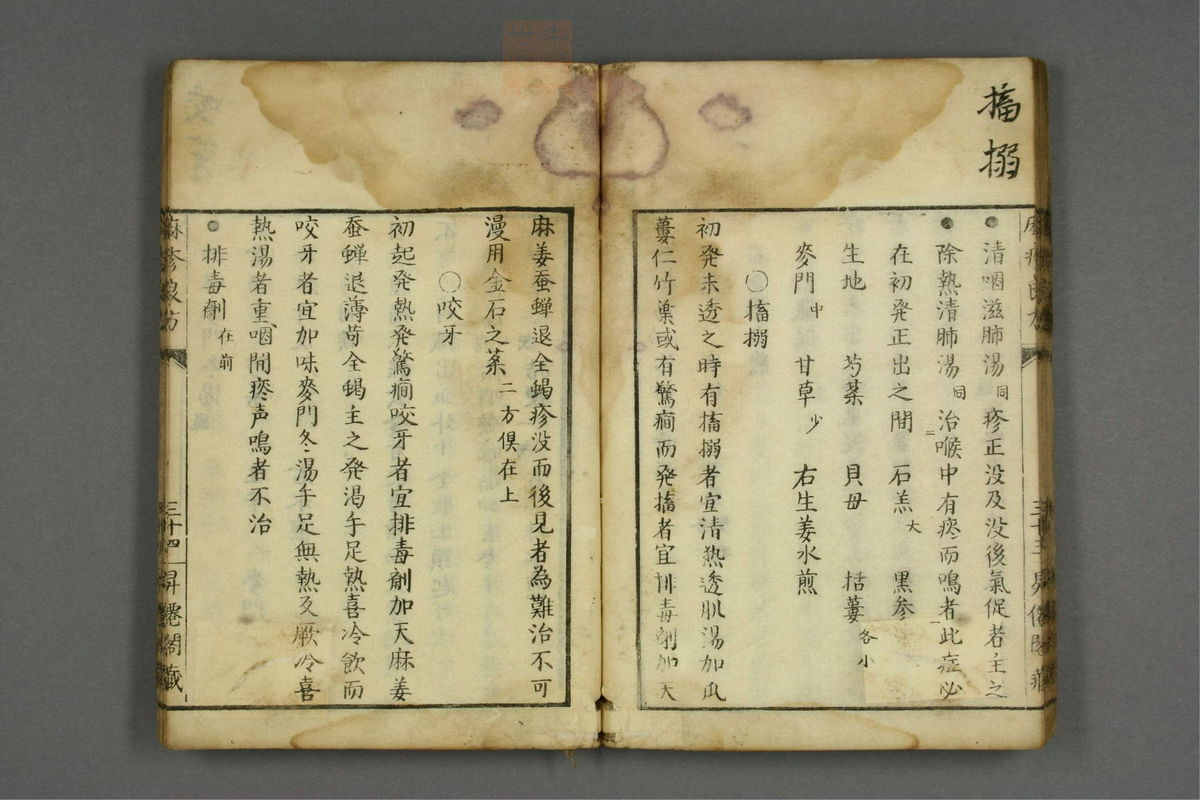 搐搦
●清咽滋肺湯同 疹正没及没後氣促者主之
●除熱清肺湯同 治喉中有疼而鳴者此症必
在初発正出之間 石羔大 黒参
生地 芍薬 貝母 括蔞各小
麥門中 甘草少 右生姜水煎
○搐搦
初発未透之時有搐搦者宜清熱透肌湯加瓜
蔞仁竹葉或有驚癇而発搐者宜排毒剤加天
麻姜蚕蝉退全蝎疹没而後見者為難治不可
漫用金石之薬二方倶在上
○咬牙
初起発熱発驚癇咬牙者宜排毒剤加天麻姜
蚕蝉退薄荷全蝎主之発渇手足熱喜冷飲而
咬牙者宜加味麥門冬湯手足無熱及厥冷喜
熱湯者重咽間疼声鳴者不治
●排毒劑在前
麻疹良方
三十四
昇僊閣藏